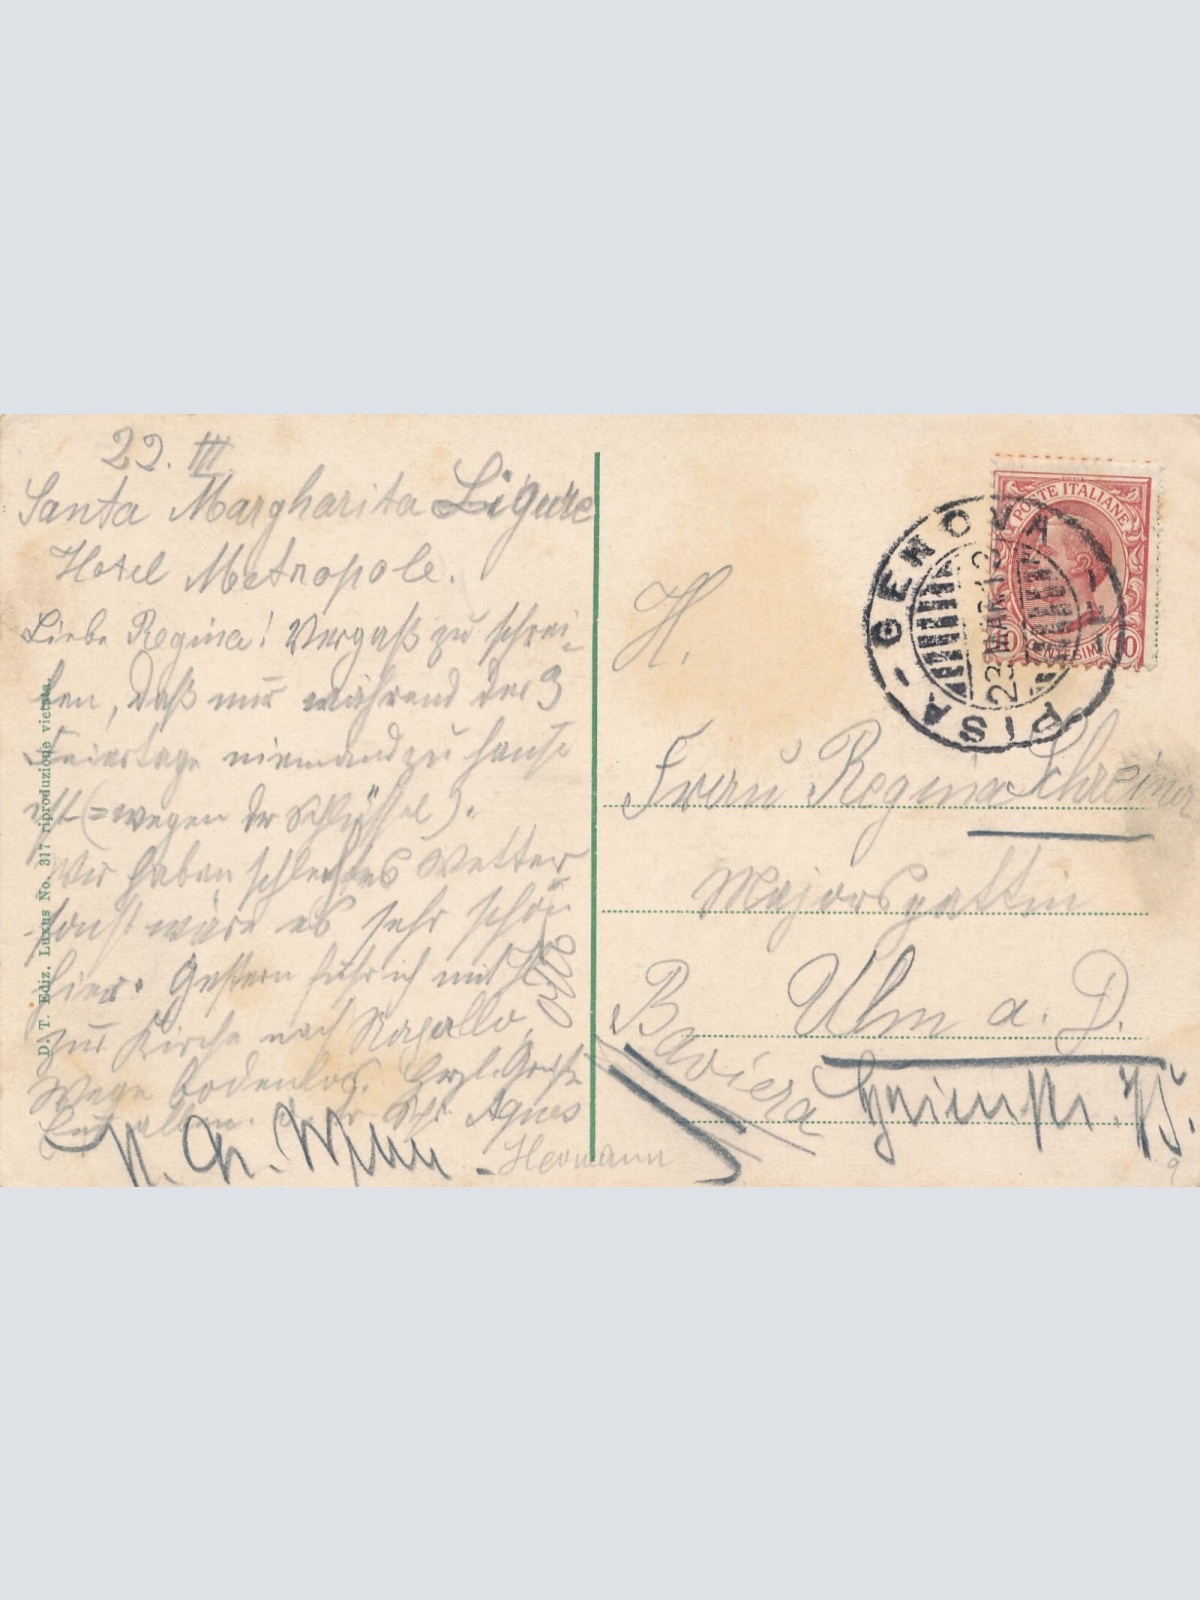 22. III.
Santa Margharita Ligure
Hotel Metropole.
Liebe Regina! Vergaß zu schrei-
ben, daß nur während der 3
Feiertage niemand zu Hause
ist (= wegen der Schlüssel).
Wir haben schlechtes Wetter
sonst wäre es sehr schön
hier. Gestern fuhr ich mit
Otto
zur Kirche nach Rapallo,
Wege bodenlos. Herzl. Grüße
Euch allen. Agnes
Hermann
D. T. Ediz. Luxus No. 317 riproduzione vietata.
PISA - GENOVA
23 MAR 13
POSTE ITALIANE
10 CENTESIMI 10
H.
Frau Regina Schreiner
Majorsgattin
Ulm a. D.
Baviera